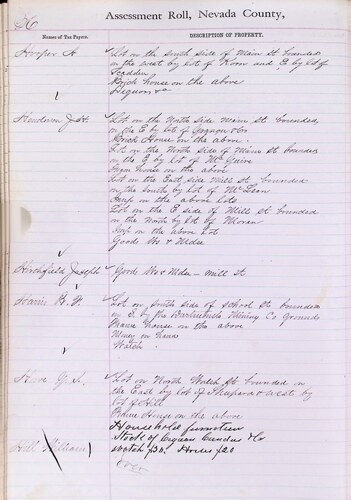 26
Assessment Roll, Nevada County,
Names of Tax Payers.
DESCRIPTION OF PROPERTY.
Hooper A
Lot on the South side of Main St bounded
on the west by lot of and E by lot of
Scadden
Brick house on the above
Liquors &c
Henderson J. H.
Lot on the North side Main St bounded
on the E by lot of & Co
Brick House on the above.
Lot on the North side of Main St bounded
on the E by lot of McGuire
House on the above
Lot on the East side Mill St bounded
on the South by lot of McLean
Imp on the above lots
Lot on the E side of Mill St bounded
on the North by lot by Moran
Imp on the above Lot
Goods Ws & Mdse
Hirchfield Joseph
Goods Ws & Mdse - Mill St
Harris B. F.
Lot on South side of School St bounded
on E. by the Mining Co grounds
Frame house on the above
Money on hand
Watch
G. S.
Lot on North Walsh St bounded in
the East by lot of Shephard & West by
lot of Hill
Frame House on the above
Household furniture
Stock of Cigars Candies &c
watch $30. Horses $20
Hill William